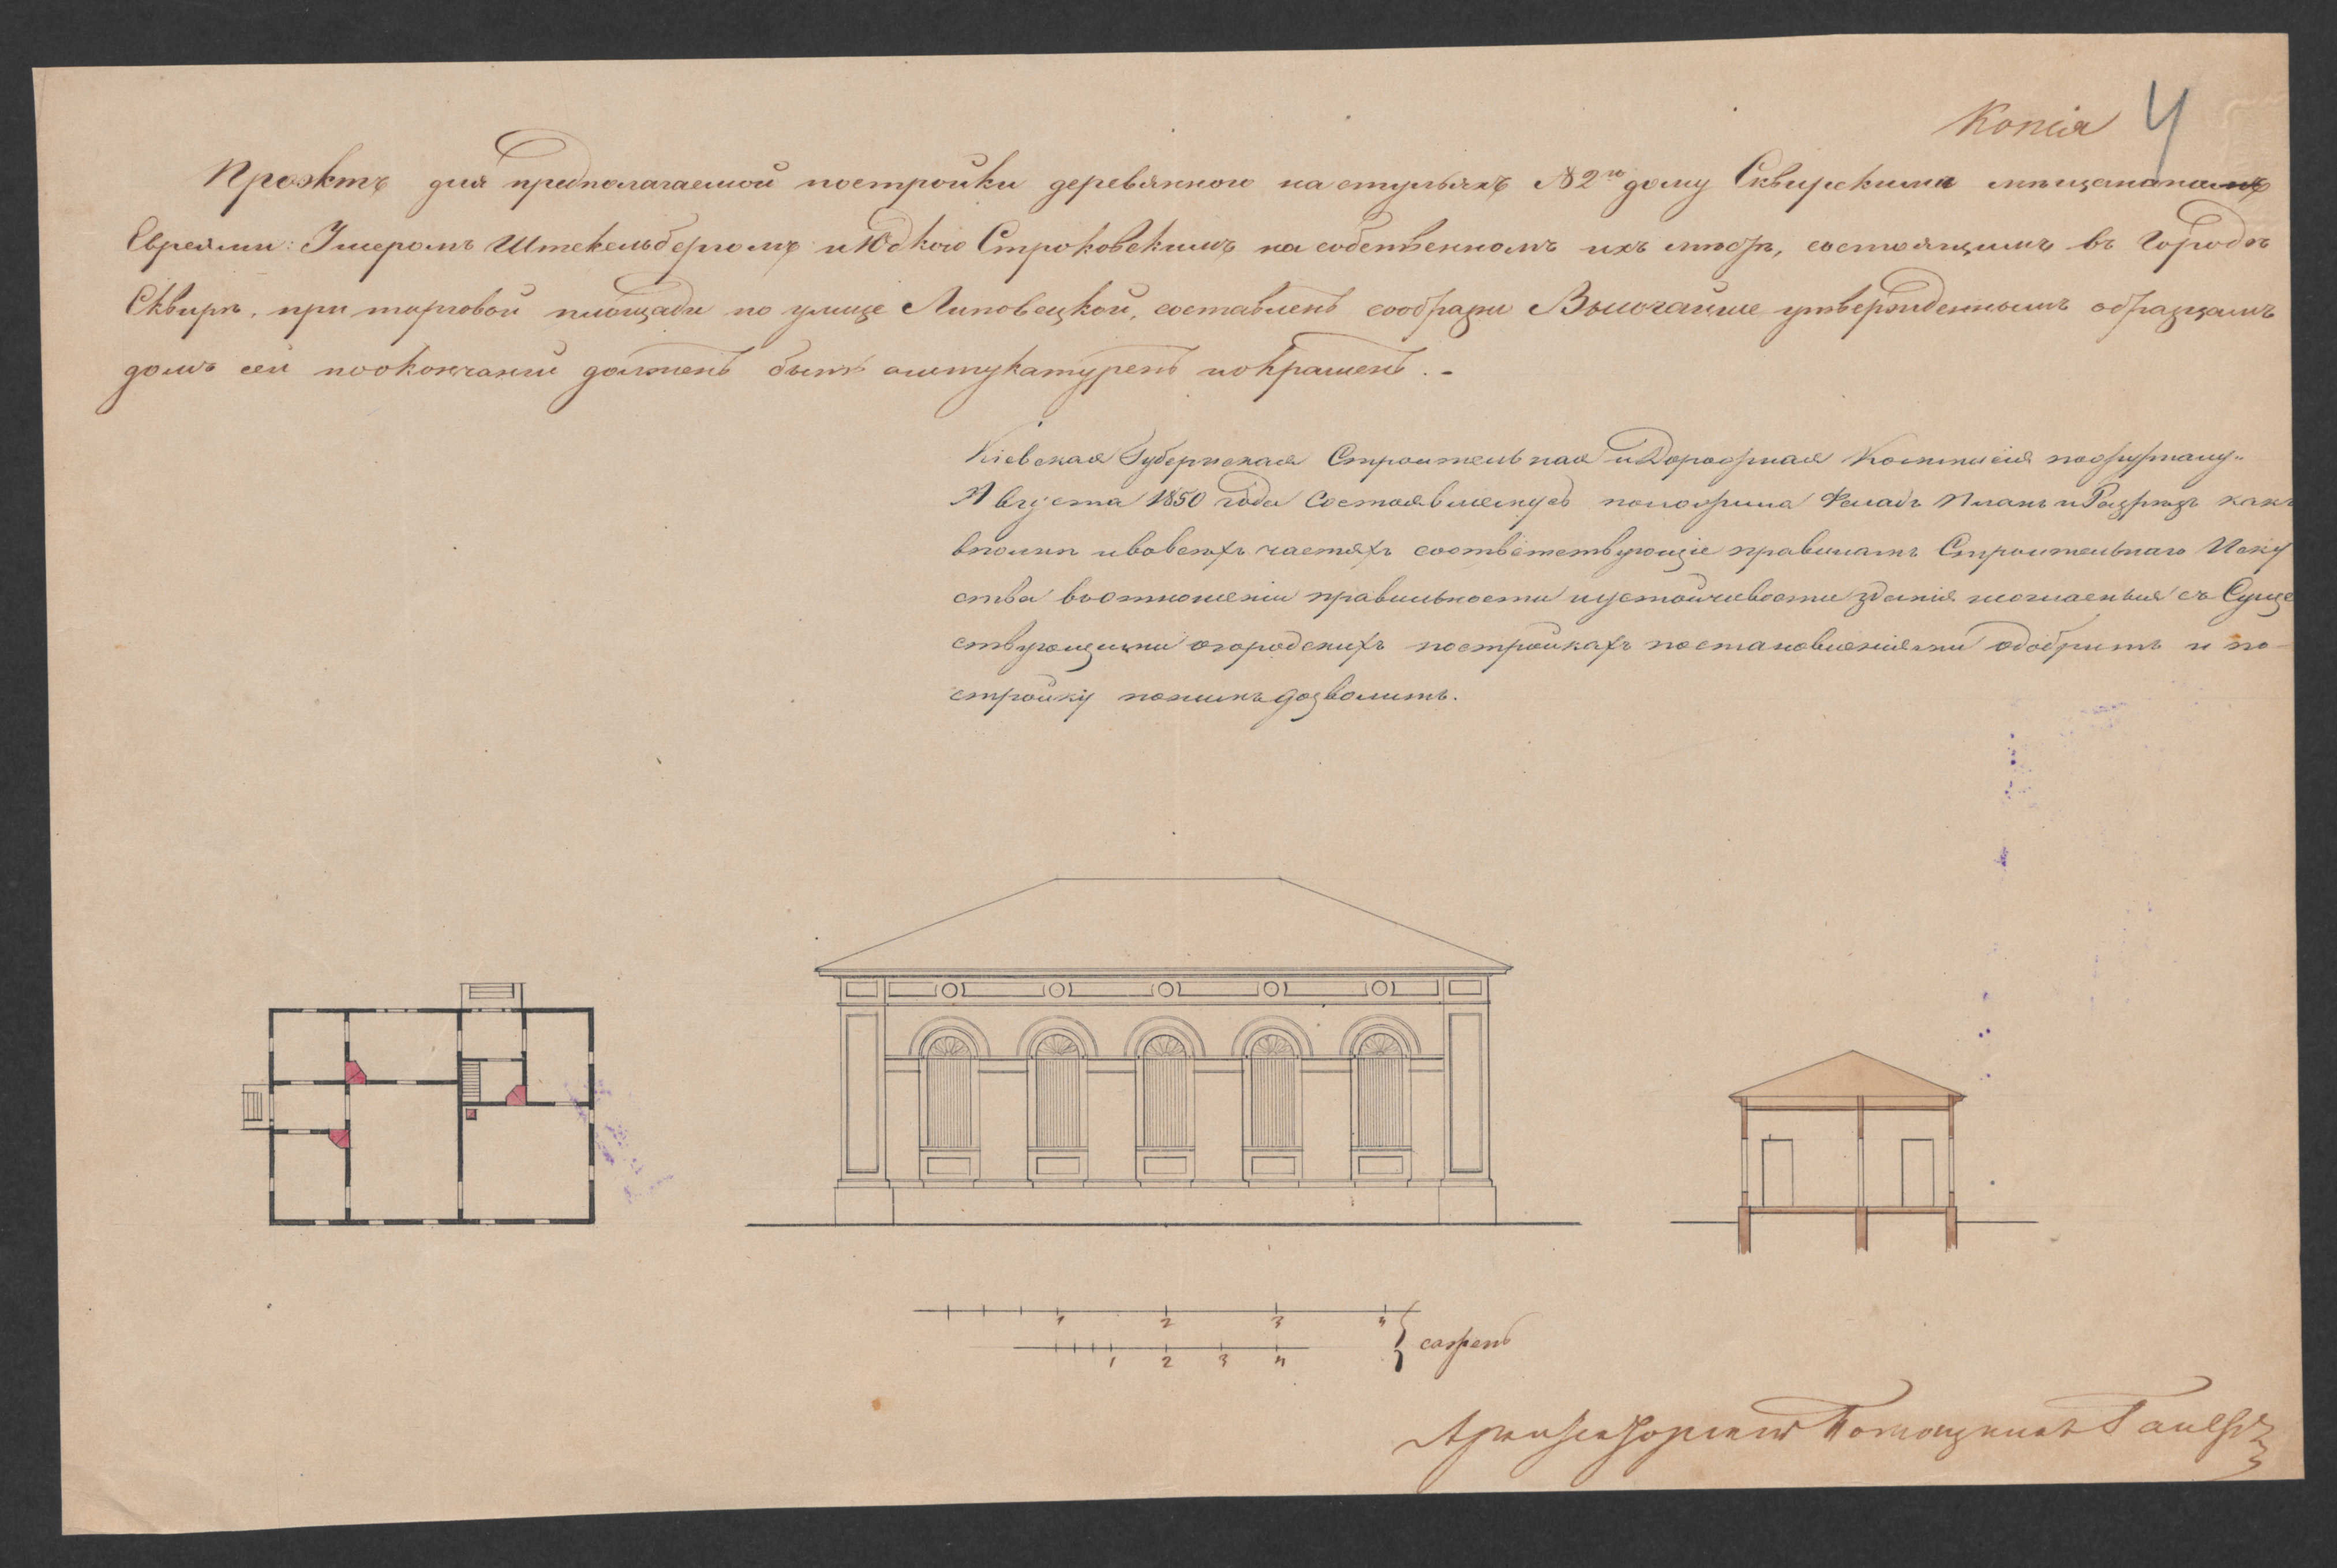 Копія 4
Проэктъ для предполагаемой постройки деревяннаго на стульяхъ №2го дому Сквирскими мѣщанами
Евреями: Ушеромъ Штекельбергомъ и Юдкою Строковскимъ на собственномъ ихъ мѣстѣ, состоящимъ въ Городѣ
Сквирѣ, при торговой площади по улице Липовецкой, составленъ сообразно Высочайше утвержденнымъ образцамъ
домъ сей поокончаніи долженъ быть оштукатуренъ и окрашенъ.
Кіевская Губернская Строительная и Дорожная Коммисія по журналу
Августа 1850 года Состоявшемуся положила Фасадъ Планъ и Разрѣзъ какъ
вполнѣ и вовсѣхъ частяхъ соотвѣтствующіе правиламъ Строительнаго Иску
ства въотношеніи правильности и устойчивости зданія и согласныя съ Суще
ствующими о городскихъ постройкахъ постановленіями одобрить и по-
стройку понимъ дозволить.
1 2 3 4
1 2 3 4
сажень
Архитекторскій Помощникъ